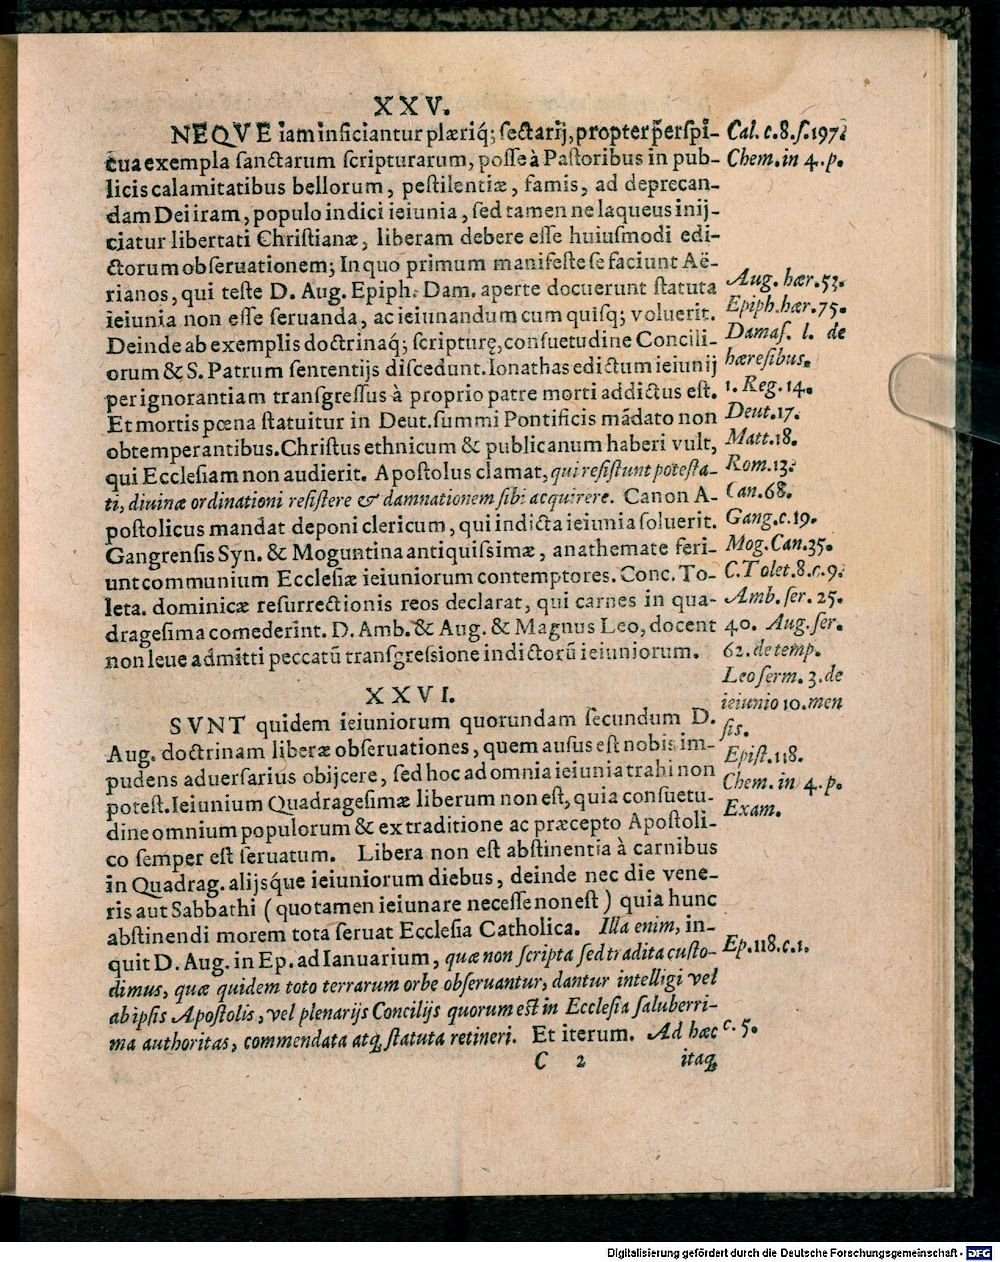 XXV.
NEQVE iam inficiantur plæriq́; sectarij, propter p̃erspi-
cua exempla sanctarum scripturarum, posse à Pastoribus in pub-
licis calamitatibus bellorum, pestilentiæ, famis, ad deprecan-
dam Dei iram, populo indici ieiunia, sed tamen ne laqueus inij-
ciatur libertati Christianæ, liberam debere esse huiusmodi edi-
ctorum obseruationem; In quo primum manifeste se faciunt Aë-
rianos, qui teste D. Aug. Epiph. Dam. aperte docuerunt statuta
ieiunia non esse seruanda, ac ieiunandum cum quisq; voluerit.
Deinde ab exemplis doctrinaq́; scripturę, consuetudine Concili-
orum & S. Patrum sententijs discedunt. Ionathas edictum ieiunij
per ignorantiam transgressus à proprio patre morti addictus est.
Et mortis pœna statuitur in Deut. summi Pontificis mãdato non
obtemperantibus. Christus ethnicum & publicanum haberi vult,
qui Ecclesiam non audierit. Apostolus clamat, qui resistunt potesta-
ti, diuinæ ordinationi resistere & damnationem sibi acquirere. Canon A-
postolicus mandat deponi clericum, qui indicta ieiunia soluerit.
Gangrensis Syn. & Moguntina antiquissimæ, anathemate feri-
unt communium Ecclesiæ ieiuniorum contemptores. Conc. To-
leta. dominicæ resurrectionis reos declarat, qui carnes in qua-
dragesima comederint. D. Amb. & Aug. & Magnus Leo, docent
non leue admitti peccatũ transgressione indictorũ ieiuniorum.
Cal. c. 8. s. 197.
Chem. in 4. p.
Aug. hær. 53.
Epiph. hær. 75.
Damas. l. de
hæresibus.
1. Reg. 14.
Deut. 17.
Matt. 18.
Rom. 13.
Can. 68.
Gang. c. 19.
Mog. Can. 35.
C. Tolet. 8. c. 9.
Amb. ser. 25.
40. Aug. ser.
62. de temp.
Leo serm. 3. de
ieiunio 10. men
sis.
XXVI.
SVNT quidem ieiuniorum quorundam secundum D.
Aug. doctrinam liberæ obseruationes, quem ausus est nobis im-
pudens aduersarius obijcere, sed hoc ad omnia ieiunia trahi non
potest. Ieiunium Quadragesimæ liberum non est, quia consuetu-
dine omnium populorum & ex traditione ac præcepto Apostoli-
co semper est seruatum. Libera non est abstinentia à carnibus
in Quadrag. alijsque ieiuniorum diebus, deinde nec die vene-
ris aut Sabbathi (quo tamen ieiunare necesse non est) quia hunc
abstinendi morem tota seruat Ecclesia Catholica. Illa enim, in-
quit D. Aug. in Ep. ad Ianuarium, quæ non scripta sed tradita custo-
dimus, quæ quidem toto terrarum orbe obseruantur, dantur intelligi vel
ab ipsis Apostolis, vel plenarijs Concilijs quorum est in Ecclesia saluberri-
ma authoritas, commendata atq; statuta retineri. Et iterum. Ad hæc
Epist. 118.
Chem. in 4. p.
Exam.
Ep. 118. c. 1.
c. 5.
C 2
itaq;
Digitalisierung gefördert durch die Deutsche Forschungsgemeinschaft - DFG